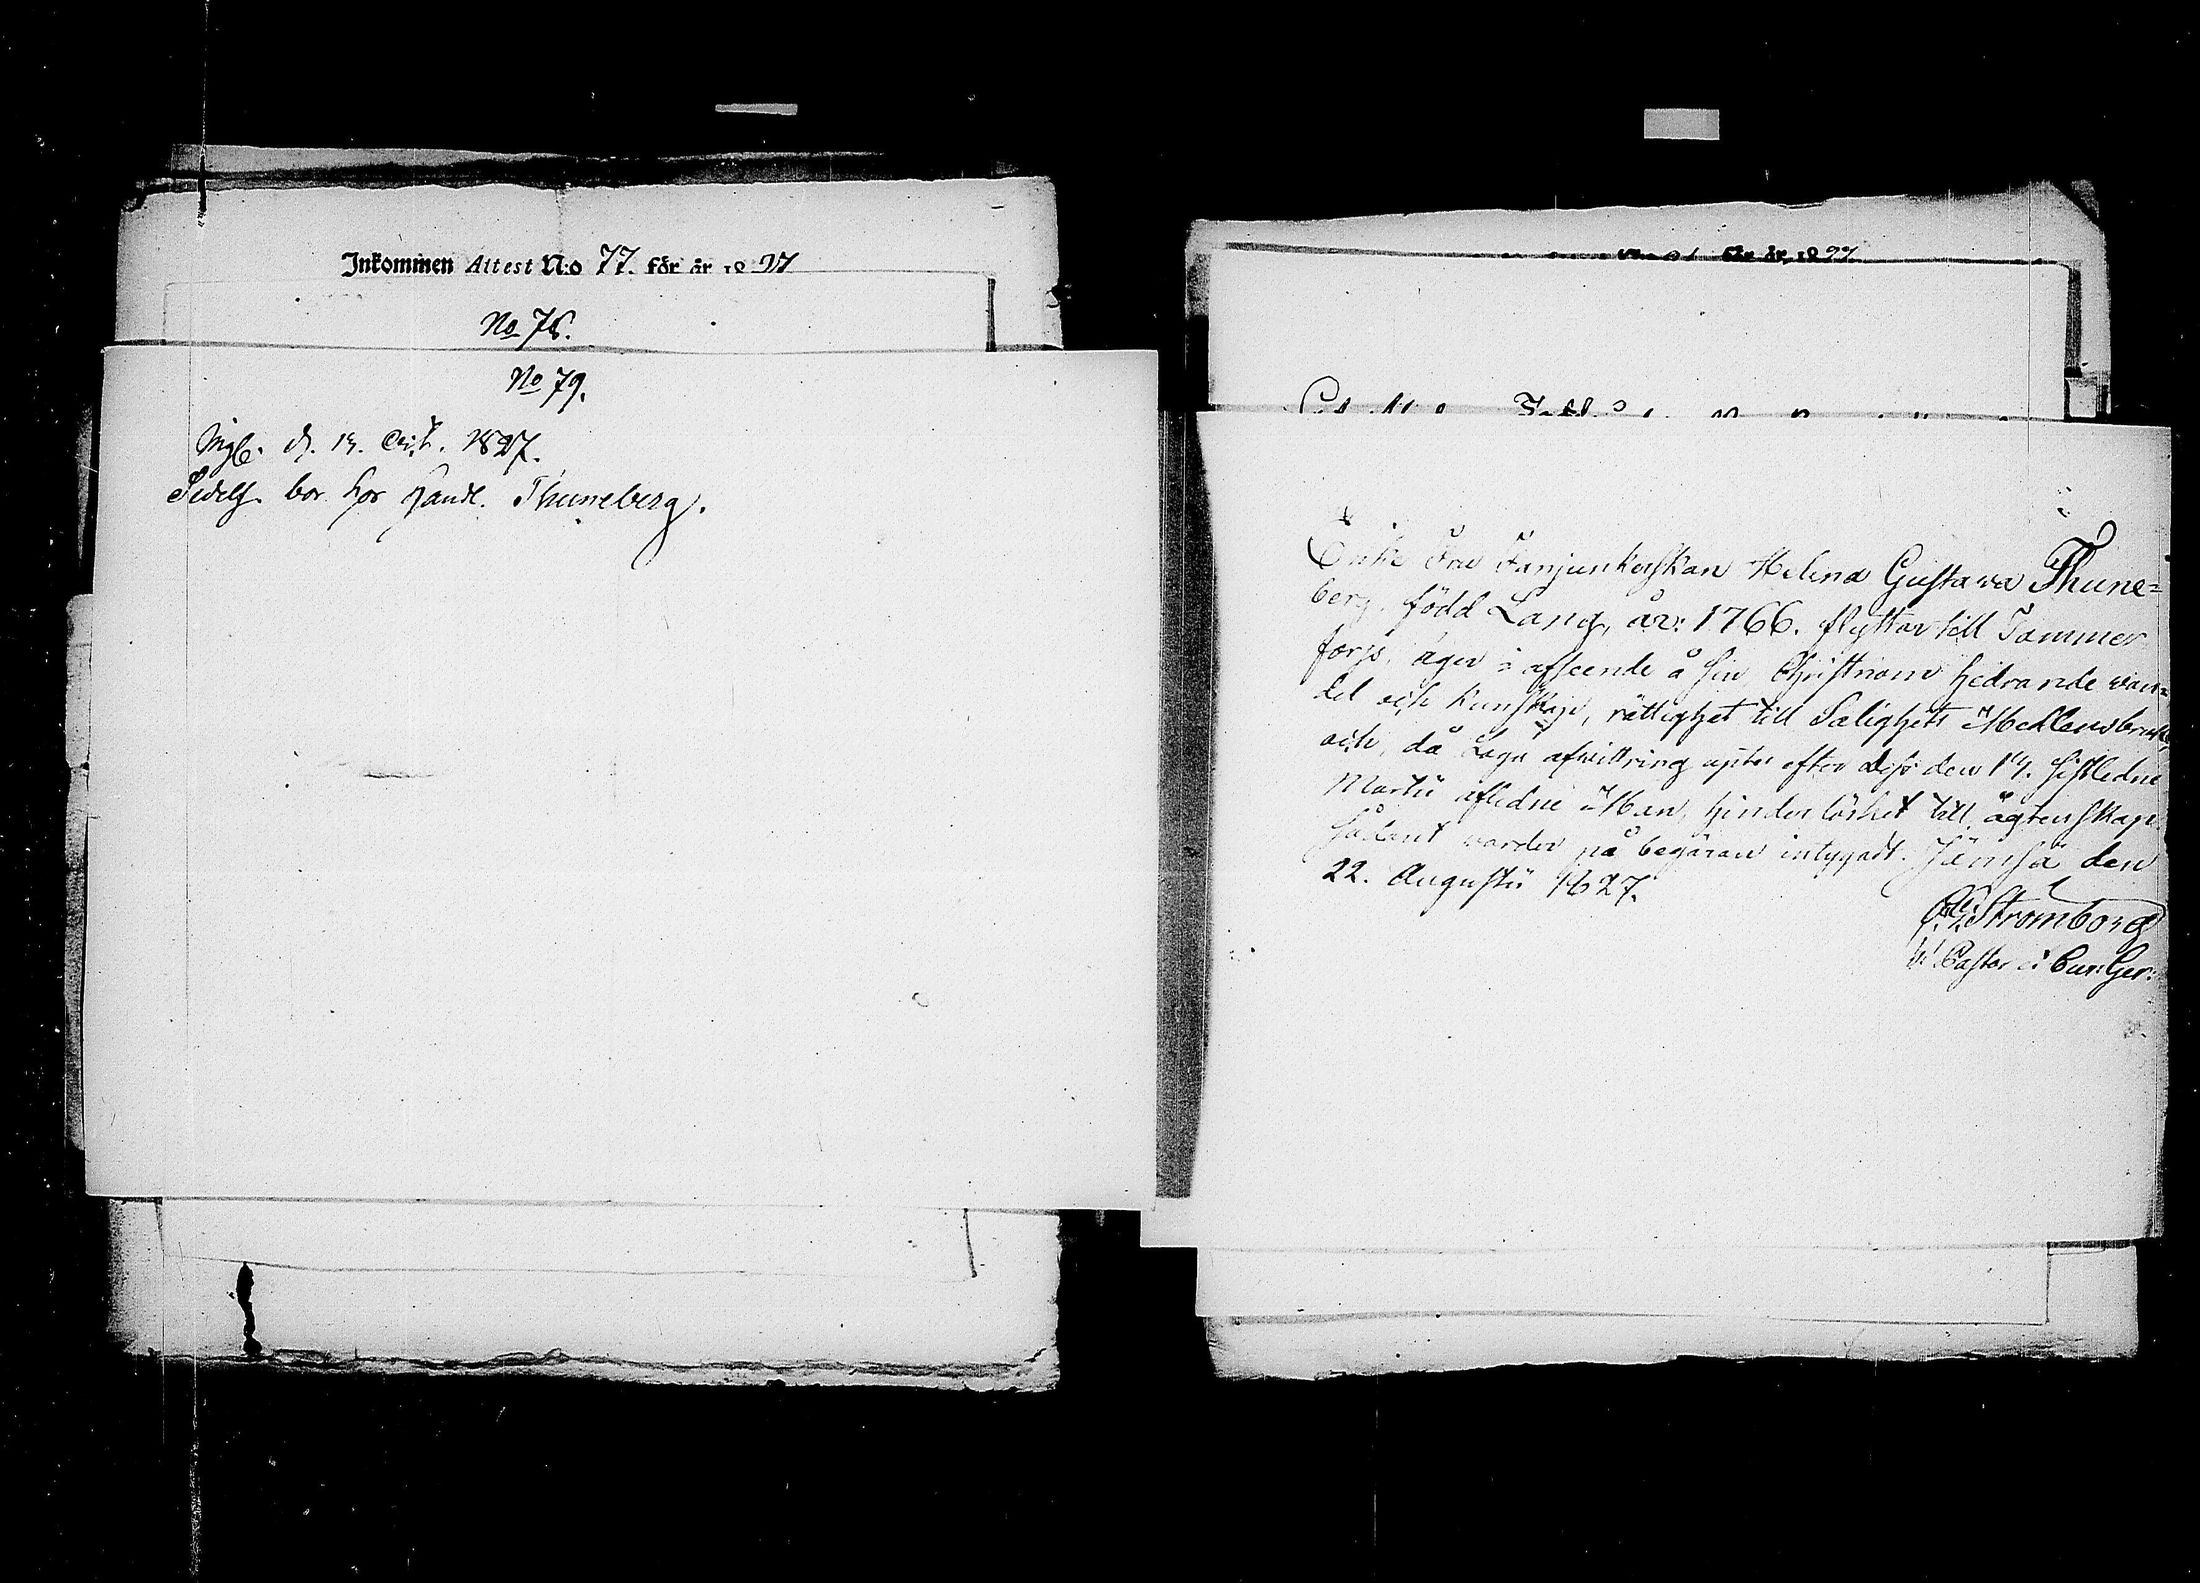 Inkommen Attest N:o 77. för år 1827
No 78.
No 79.
d. 13. Oct. 1827.
bor hos Handl. Thuneberg.
för år 1827
Enke Fru Fanjunkerskan Helena Gustava Thune=
berg, född Lang, år: 1766. flyttar till Tammer
fors, äger i afseende å sin Christendom hedrande wan=
del och kunskap, rättighet till Salighets Medlens bruk,
och, då Laga afwittring sker efter dess den 14. sistledne
Martii aflidne Man, hinderlöshet till ägtenskap.
Sådant warder på begäran intygadt. Jämsä den
22. Augusti 1827.
Strömborg
V. Pastor i Cur. Ger: